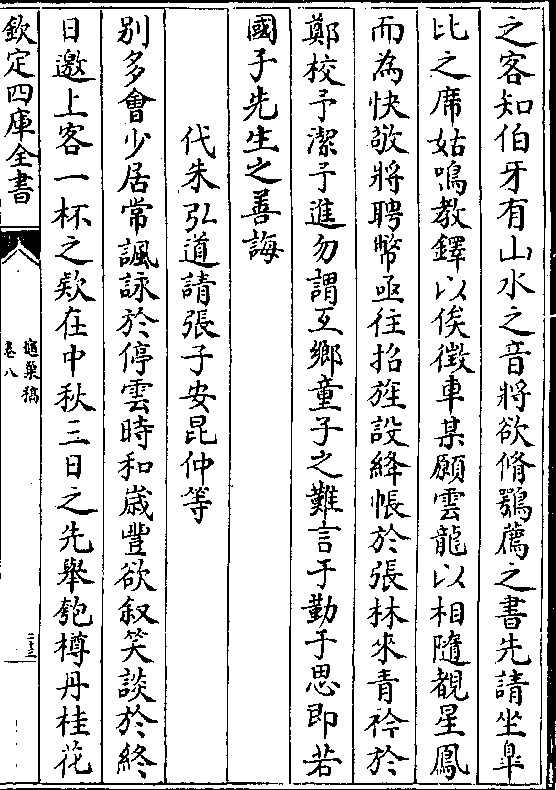 之客知伯牙有山水之音將欲脩鶚薦之書先請坐臯
比之席姑鳴教鐸以俟徵車某願雲龍以相隨覩星鳳
而為快敬將聘幣亟往招旌設絳帳於張林來青衿於
鄭校予潔予進勿謂互鄉童子之難言于勤于思即若
國子先生之善誨
代朱弘道請張子安昆仲等
別多會少居常諷詠於停雲時和歲豐欲叙笑談於終
日邀上客一杯之欵在中秋三日之先舉匏樽丹桂花
欽定四庫全書
巢稿
卷八
二十三